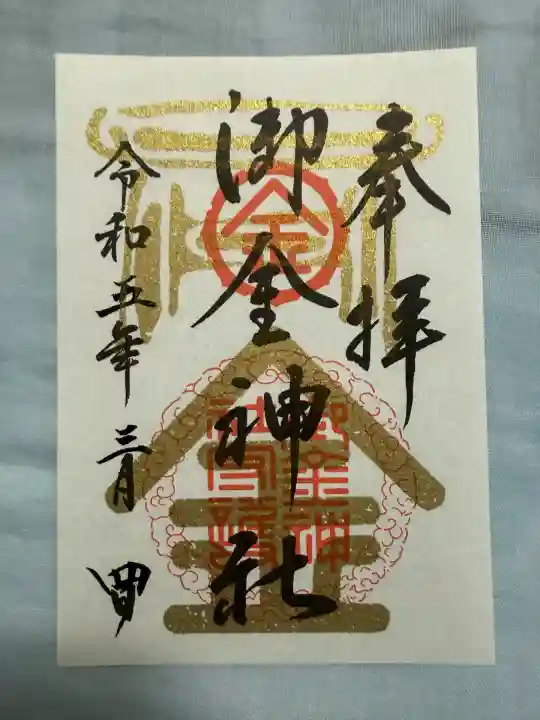 奉拝
御金神社
令和五年三月四日
金
御金神
社